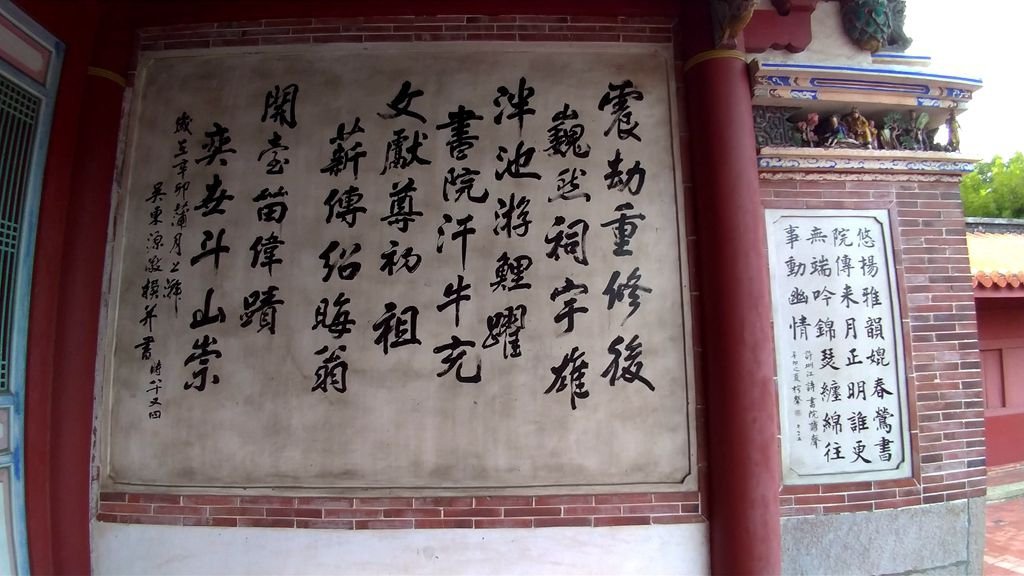 震劫重修後
巍然祠宇雄
泮池游鯉躍
書院汗牛充
文獻尊初祖
薪傳紹晦翁
開臺留偉蹟
奕世斗山崇
歲立辛卯蒲月上澣
吳東源敬撰并書 時八十又四
悠揚雅韻媲春鶯書
院傳来月正明誰更
無端吟錦瑟纏綿往
事動幽情